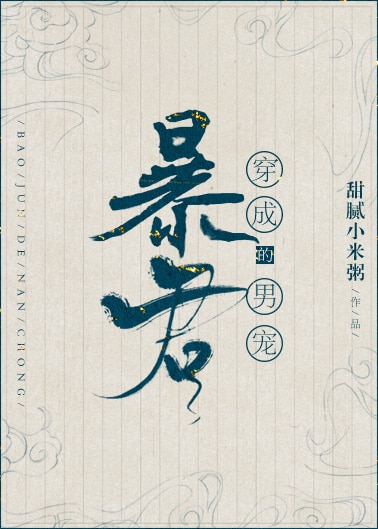 穿成的男宠
暴君
甜腻小米粥/作/品/
/BAO/JUN/DE/NAN/CHONG/